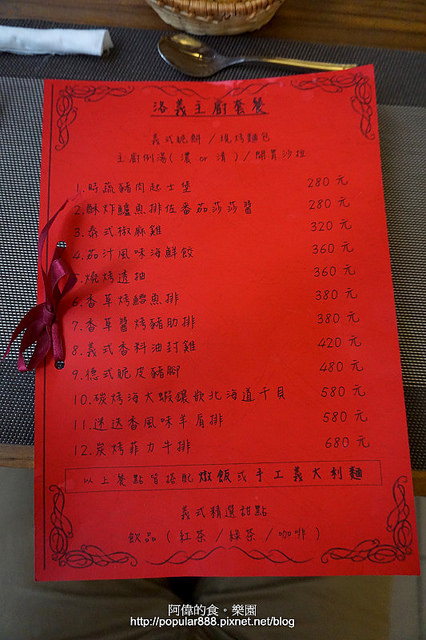 洛義主廚套餐
義式脆餅 / 現烤麵包
主廚例湯( 濃 or 清 ) / 開胃沙拉
1.時蔬豬肉起士堡 280 元
2.酥炸鱸魚排佐番茄莎莎醬 280 元
3.泰式椒麻雞 320 元
4.茄汁風味海鮮餃 360 元
5.燒烤透抽 360 元
6.香草烤鯛魚排 380 元
7.香草醬烤豬肋排 380 元
8.義式香料油封雞 420 元
9.德式脆皮豬腳 480 元
10.碳烤海大蝦鑲嵌北海道干貝 580 元
11.迷迭香風味羊肩排 580 元
12.炭烤菲力牛排 680 元
以上餐點皆搭配燉飯或手工義大利麵
義式精選甜點
飲品 ( 紅茶 / 綠茶 / 咖啡 )
阿偉的食。樂園
http://popular888.pixnet.net/blog